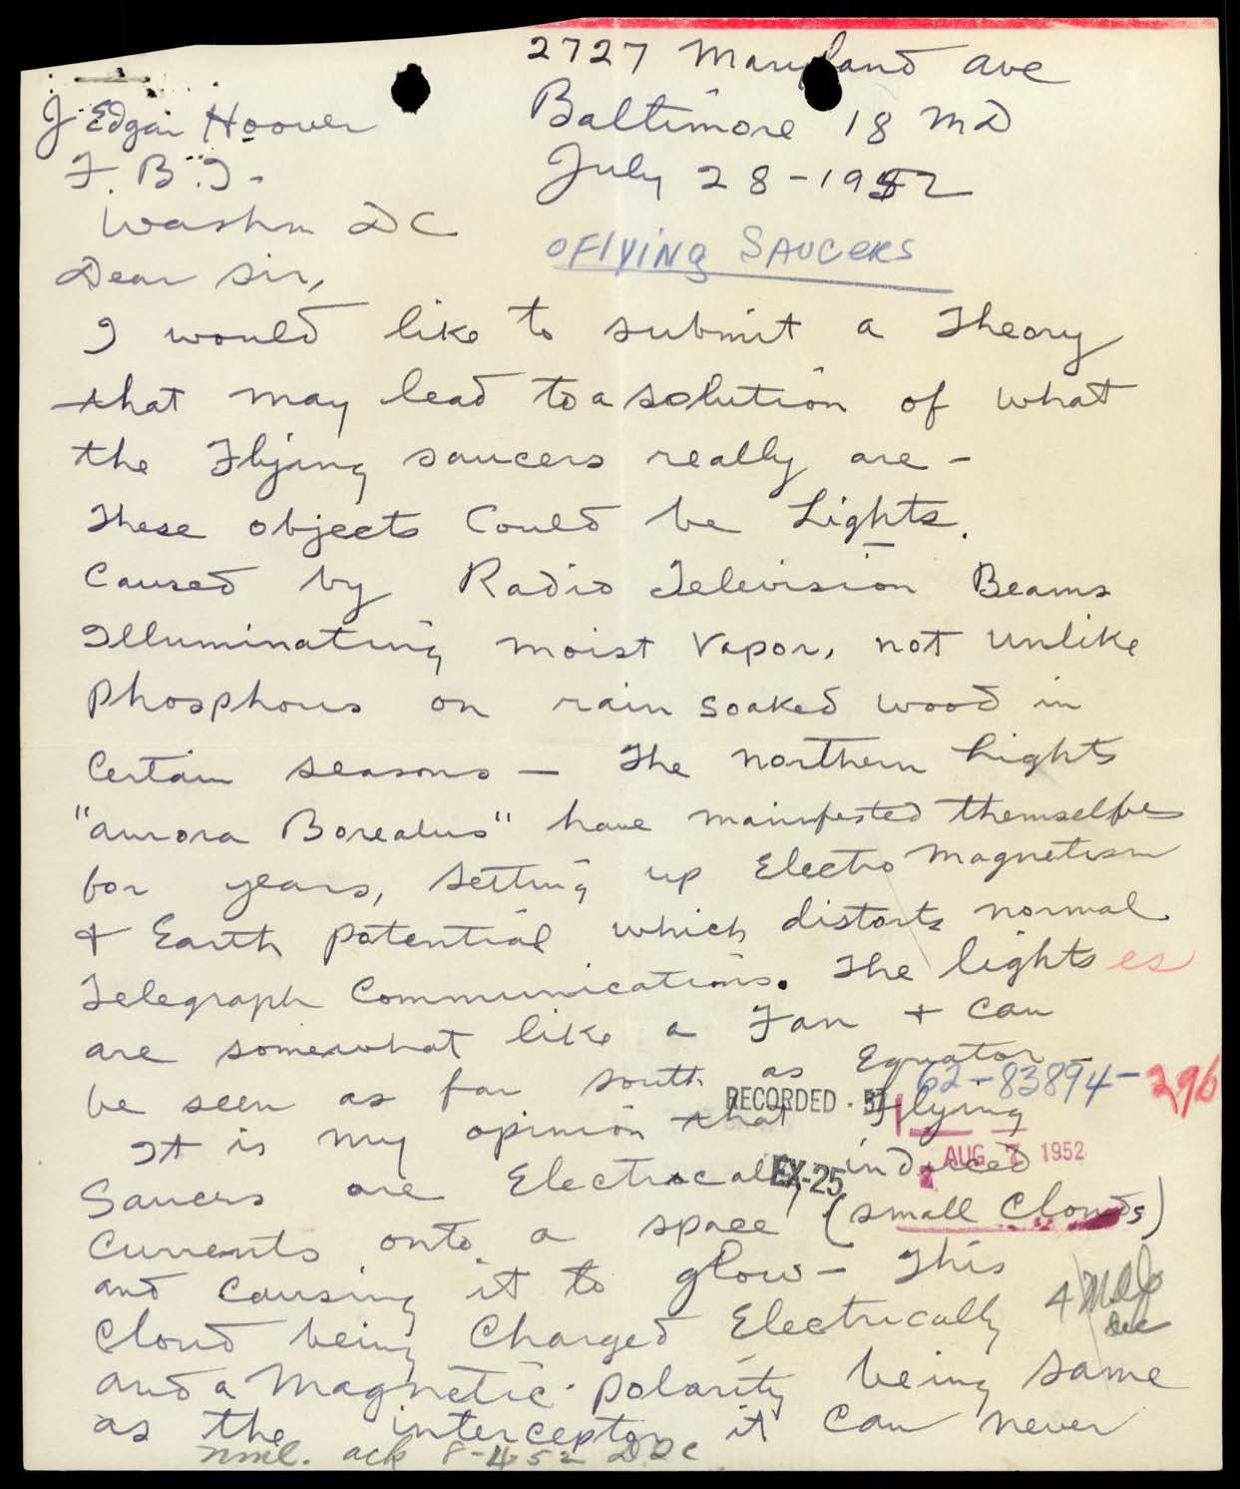 2727 Maryland Ave
Baltimore 18 MD
July 28-1952
J Edgar Hoover
F.B.I.
Washn DC
OFlYiNg SAUCERS
Dear Sir,
I would like to submit a Theory
that may lead to a solution of what
the Flying saucers really are -
These objects Could be Lights.
Caused by Radio Television Beams
Illuminating moist Vapor, not unlike
Phosphorus on rain soaked wood in
Certain seasons - The northern Lights
"aurora Borealus" have mainfested themselfes
for years, setting up Electro Magnetism
+ Earth potential which distorts normal
Telegraph Communications. The lights es
are somewhat like a Fan + can
be seen as far south as Equator -
62-83894-296
RECORDED - 57
It is my opinion that Flying
AUG 7 1952
EX-25
Saucers are Electrecally induced
Currents onto a space (small Clouds)
and causing it to glow - This
Cloud being Charged Electrically
and a Magnetic polarity being same
as the interceptor it can never
nml. ack 8-4-52